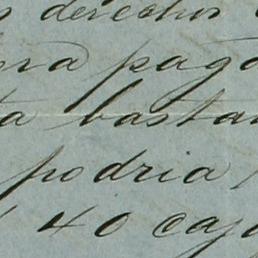 derechos
paga
ta bastan
podria
40 caj